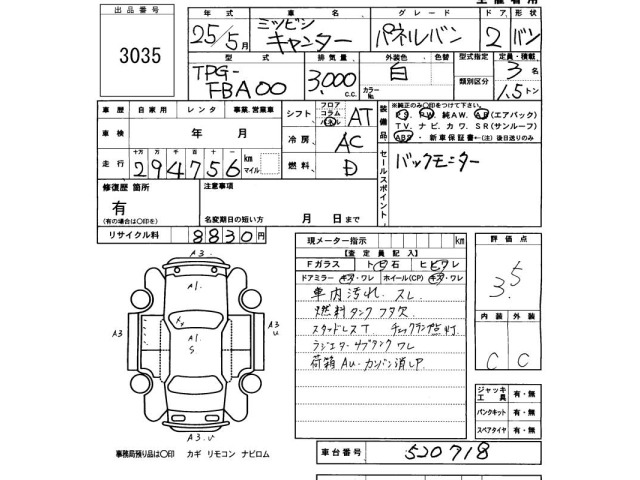 出品番号
3035
年式 車名 グレード ドア 形状
25/5月 ミツビシ キャンター パネルバン 2 バン
型式 排気量 外装色 色替 型式指定 定員・積載
TPG-FBA00 3,000 c.c. 白 カラーNo. 類別区分 3名
1.5トン
車歴 自家用 レンタ 事業.営業車
シフト フロア コラム パネル AT
装備品 ※純正のみ〇印をつけて下さい。
PS. PW. 純AW. AB(エアバック)
TV. ナビ. カワ. SR(サンルーフ)
ABS・新車保証書←(注)後日送りのみ
車検 年 月
冷房 AC
走行 十万 万 千 百 十 一
294756 km マイル
燃料 D
セールスポイント
バックモニター
修復歴 箇所
有
(有の場合は〇印を)
注意事項
名変期日の短い方 月 日まで
リサイクル料 8830円
現メーター指示 km
【査定員記入】
Fガラス ト石 ヒビワレ
ドアミラー キズ・ワレ ホイール(CP) キズ・ワレ
車内汚れ スレ
燃料タンクフタ欠
スタッドレスT チェックランプ点灯
ラジエターサブタンクワレ
荷箱AU-カンバン消しP
評価点
3.5
内装 外装
C C
A3.
A1.
A3
A1.
S
A3
U
A3.U
ジャッキ 工具 有・無
パンクキット 有・無
スペアタイヤ 有・無
事務局預り品は〇印 カギ リモコン ナビロム
車台番号 520718